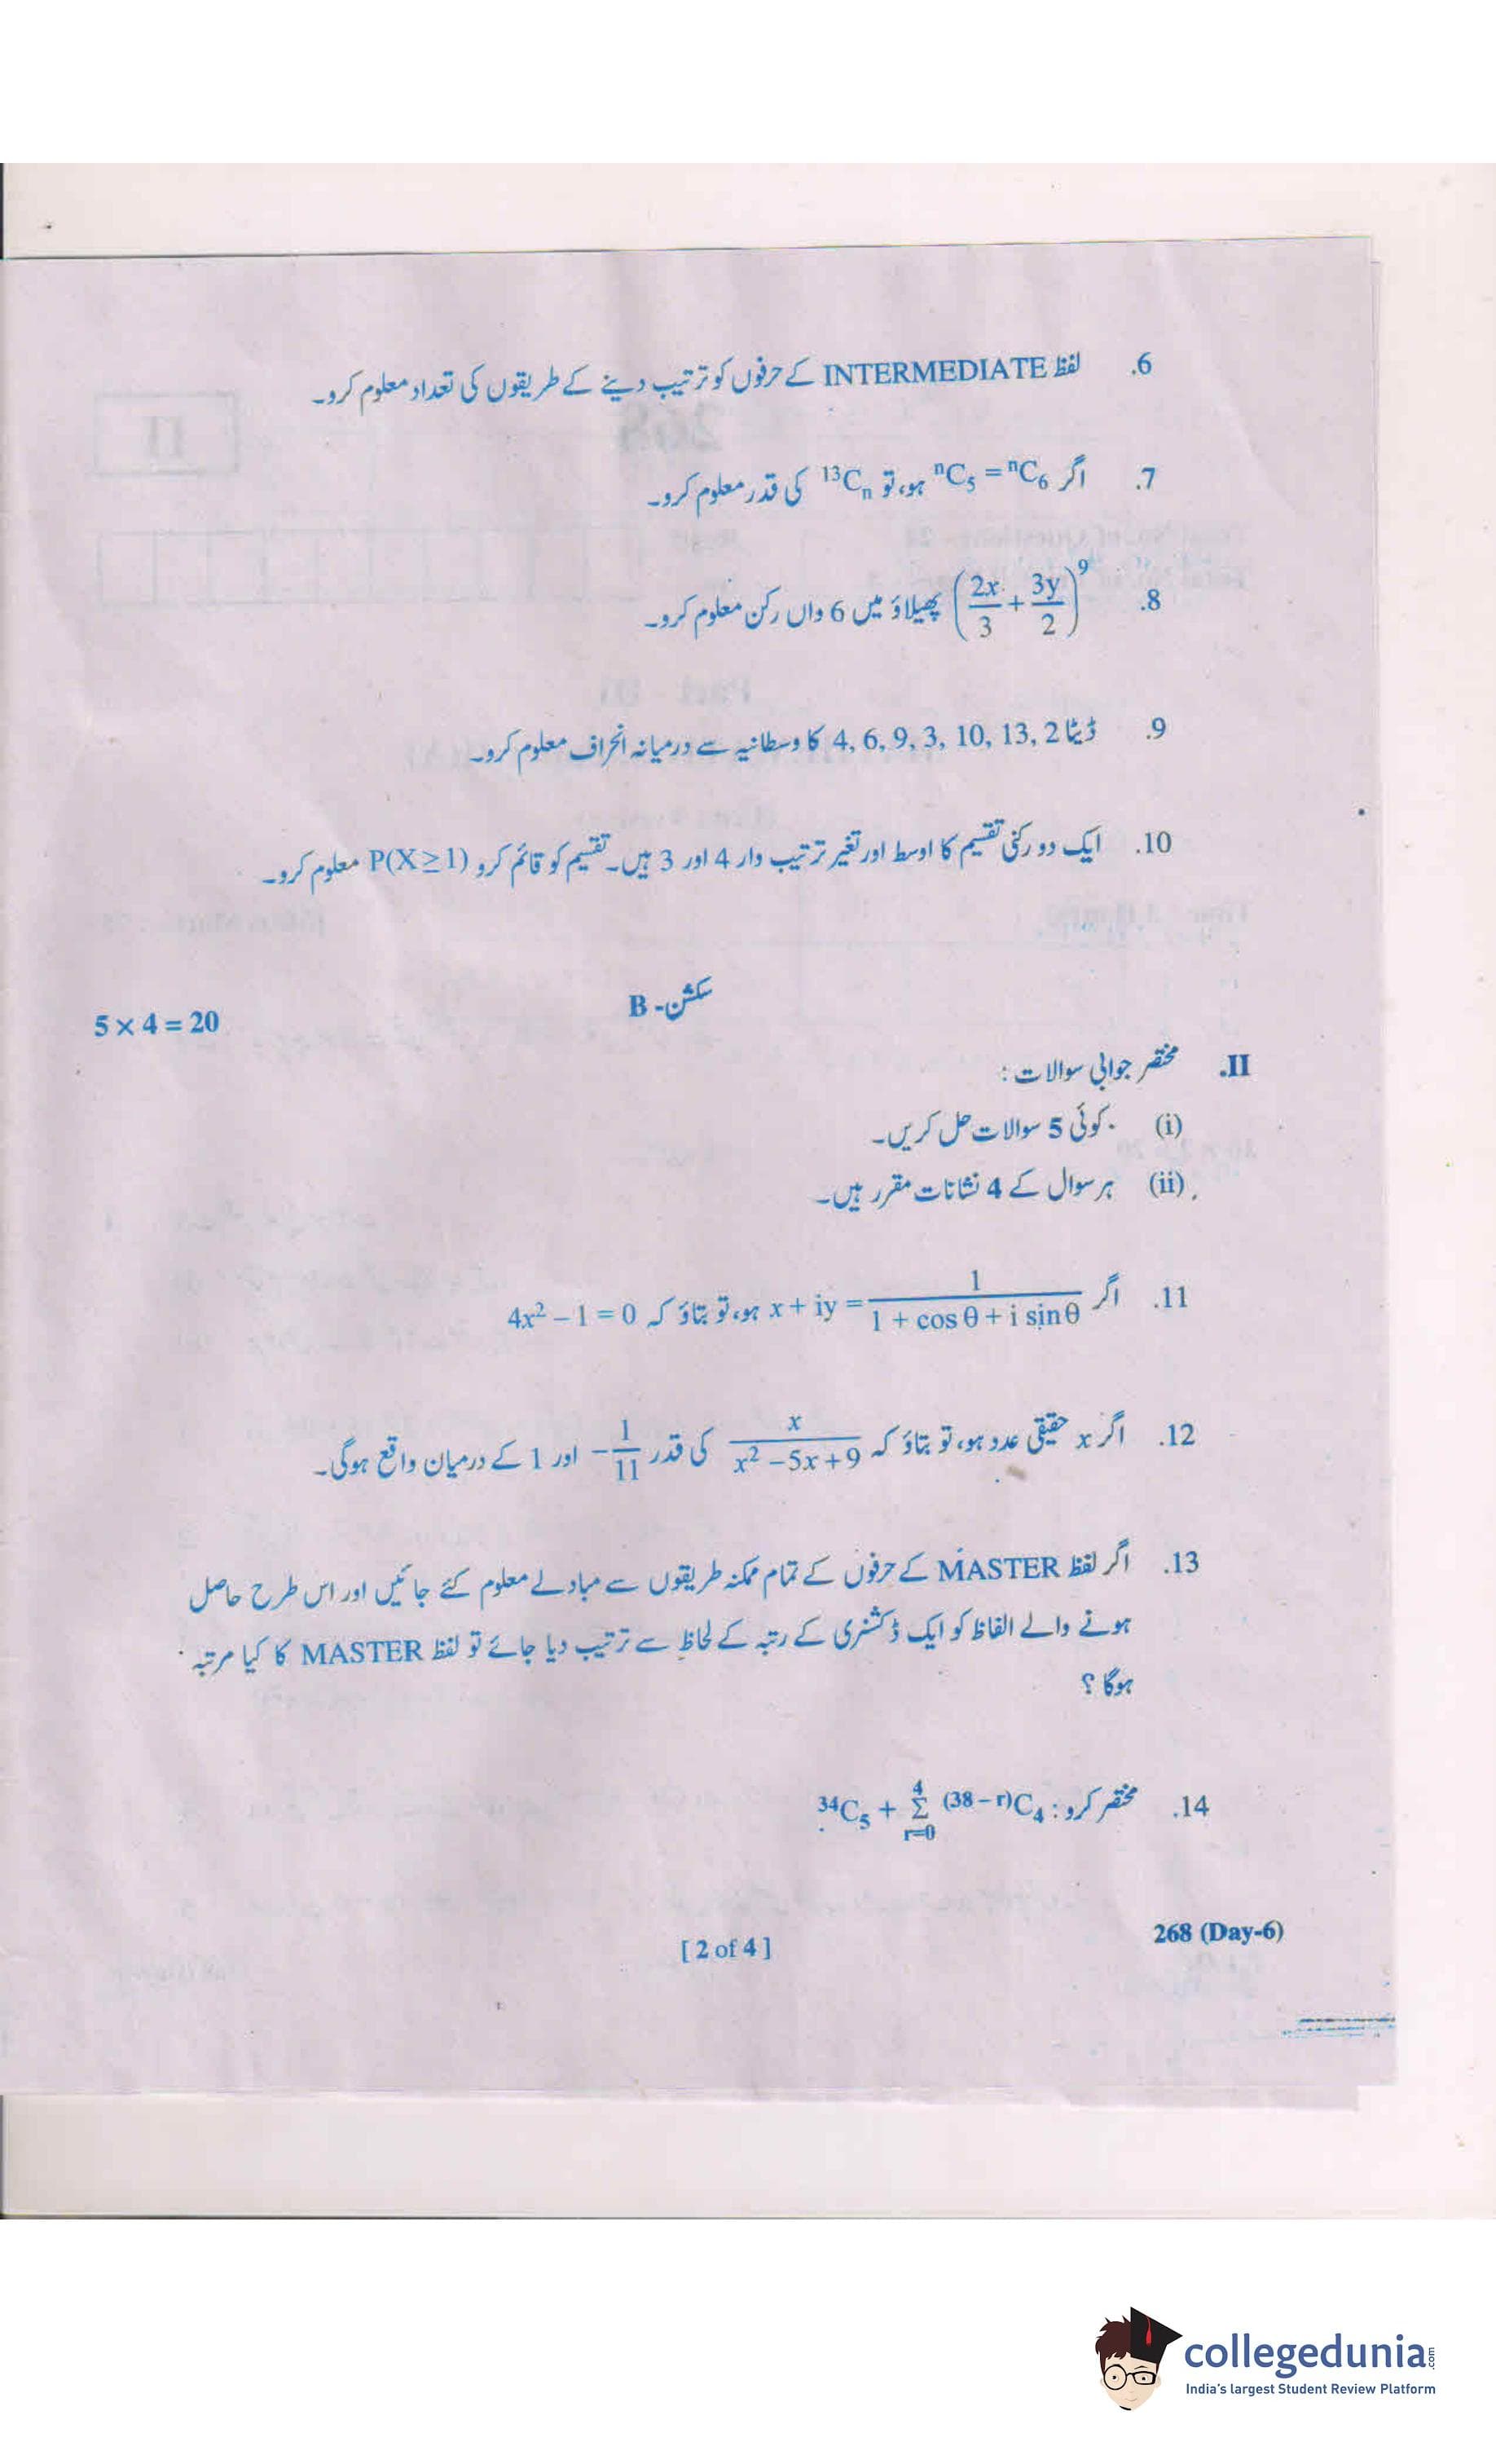 6. لفظ INTERMEDIATE کے حرفوں کو ترتیب دینے کے طریقوں کی تعداد معلوم کرو۔
7. اگر ⁿC₅ = ⁿC₆ ہو، تو ¹³Cₙ کی قدر معلوم کرو۔
8. (2x/3 + 3y/2)⁹ پھیلاؤ میں 6 واں رکن معلوم کرو۔
9. ڈیٹا 4, 6, 9, 3, 10, 13, 2 کا وسطانیہ سے درمیانہ انحراف معلوم کرو۔
10. ایک دو رکنی تقسیم کا اوسط اور تغیر ترتیب وار 4 اور 3 ہیں۔ تقسیم کو قائم کرو P(X ≥ 1) معلوم کرو۔
سکشن - B
5 × 4 = 20
II. مختصر جوابی سوالات :
(i) کوئی 5 سوالات حل کریں۔
(ii) ہر سوال کے 4 نشانات مقرر ہیں۔
11. اگر x + iy = 1/(1 + cos θ + i sin θ) ہو، تو بتاؤ کہ 4x² – 1 = 0
12. اگر x حقیقی عدد ہو، تو بتاؤ کہ x/(x² – 5x + 9) کی قدر –1/11 اور 1 کے درمیان واقع ہوگی۔
13. اگر لفظ MASTER کے حرفوں کے تمام ممکنہ طریقوں سے مبادلے معلوم کئے جائیں اور اس طرح حاصل
ہونے والے الفاظ کو ایک ڈکشنری کے رتبہ کے لحاظ سے ترتیب دیا جائے تو لفظ MASTER کا کیا مرتبہ
ہوگا ؟
14. مختصر کرو : ³⁴C₅ + Σ (r=0 → 4) ⁽³⁸⁻ʳ⁾C₄
268 (Day-6)
[ 2 of 4 ]
collegedunia.com
India's largest Student Review Platform